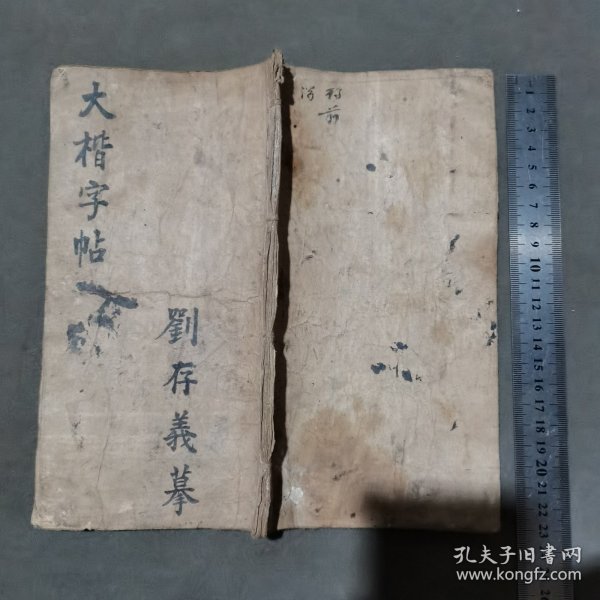 大楷字帖
劉存義摹
前
1 2 3 4 5 6 7 8 9 10 11 12 13 14 15 16 17 18 19 20 21 22 23
孔夫子旧书网
www.kongfz.com